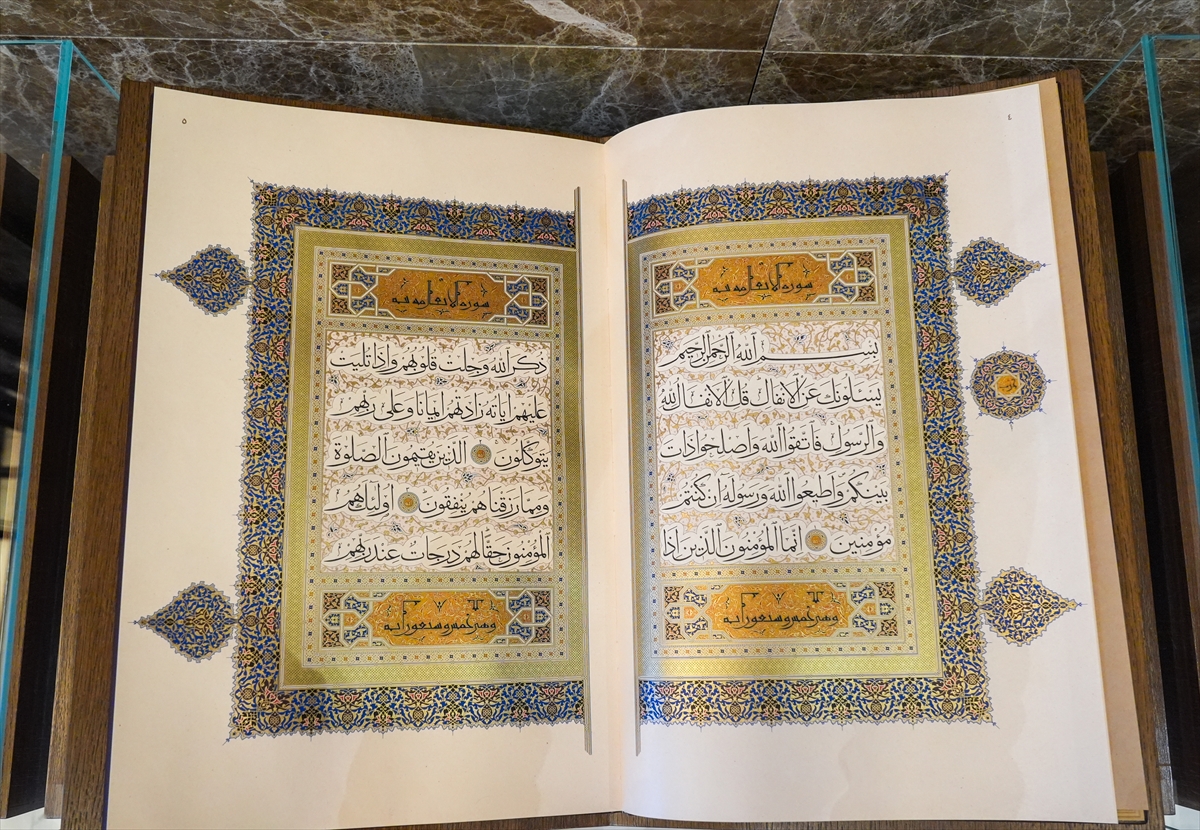 ٤
سورة الانفال مدنية
بسم الله الرحمن الرحيم
يسألونك عن الانفال قل الانفال لله
والرسول فاتقوا الله واصلحوا ذات
بينكم واطيعوا الله ورسوله ان كنتم
مؤمنين انما المؤمنون الذين اذا
وهي خمس وسبعون آية
٥
سورة الانفال مدنية
ذكر الله وجلت قلوبهم واذا تليت
عليهم اياته زادتهم ايمانا وعلى ربهم
يتوكلون الذين يقيمون الصلوة
ومما رزقناهم ينفقون اولئك هم
المؤمنون حقا لهم درجات عند ربهم
وهي خمس وسبعون آية